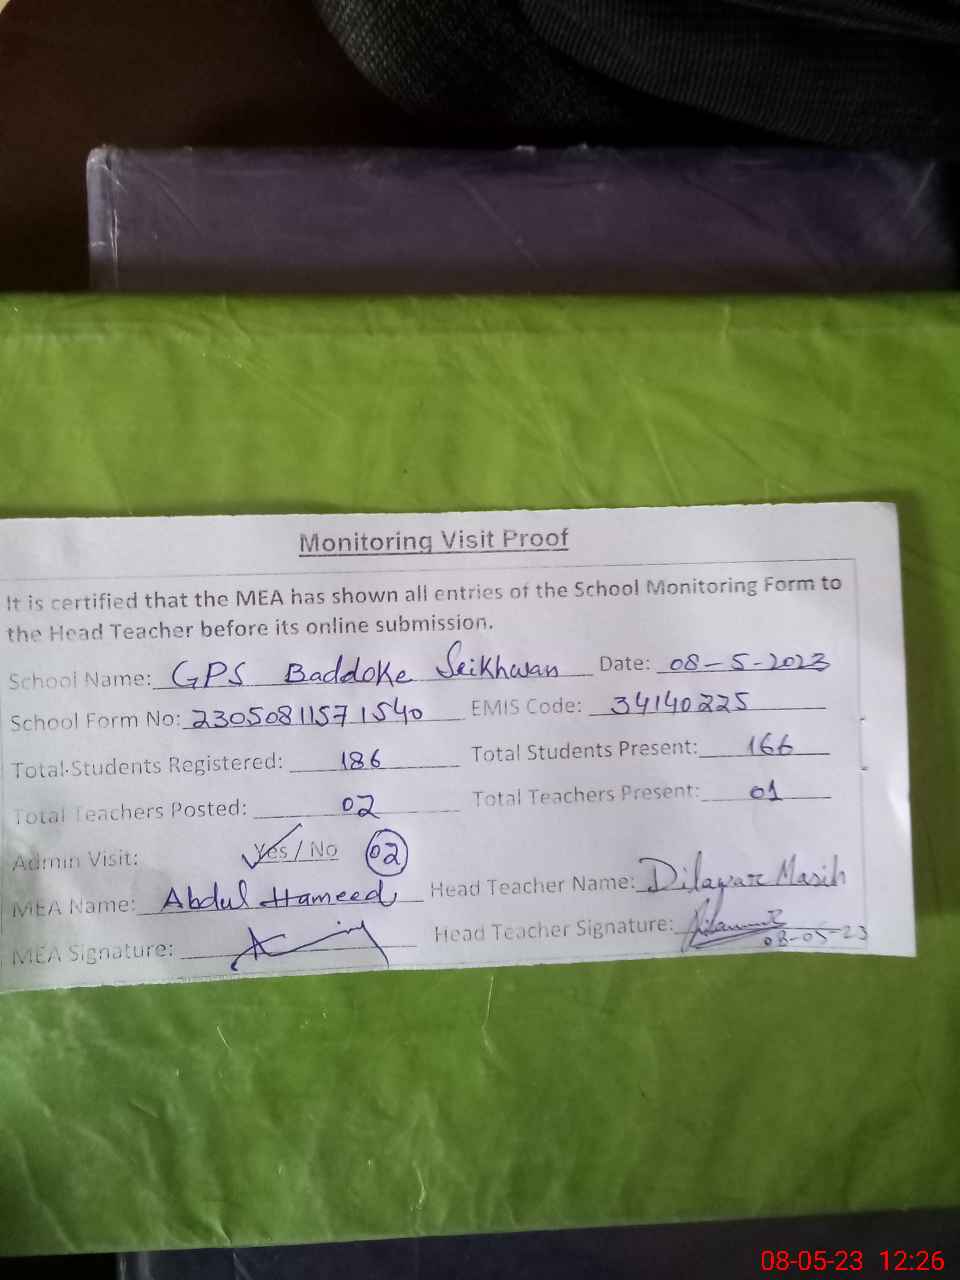 Monitoring Visit Proof
It is certified that the MEA has shown all entries of the School Monitoring Form to
the Head Teacher before its online submission.
School Name: GPS Baddoke Seikhwan Date: 08-5-2023
School Form No: 23050811571540 EMIS Code: 34140225
Total Students Registered: 186 Total Students Present: 166
Total Teachers Posted: 02 Total Teachers Present: 01
Admin Visit: Yes / No 02
MEA Name: Abdul Hameed Head Teacher Name: Dilawar Masih
MEA Signature: Head Teacher Signature:
08-05-23
08-05-23 12:26